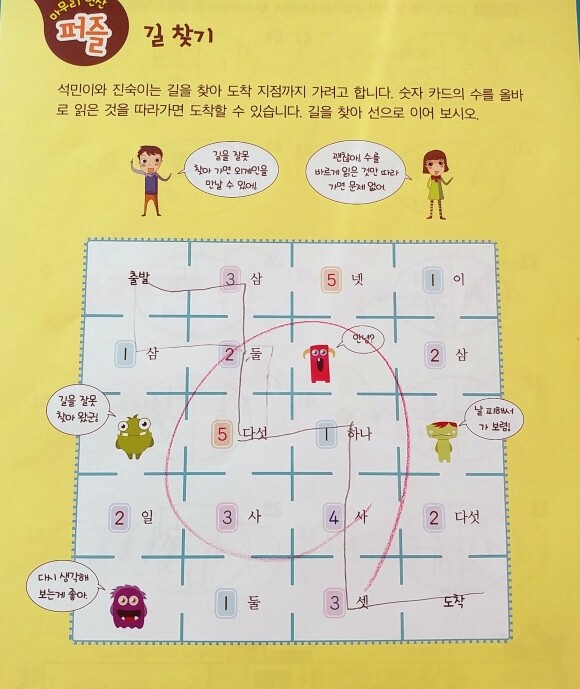 마무리 연산
퍼즐 길 찾기
석민이와 진숙이는 길을 찾아 도착 지점까지 가려고 합니다. 숫자 카드의 수를 올바
로 읽은 것을 따라가면 도착할 수 있습니다. 길을 찾아 선으로 이어 보시오.
길을 잘못
찾아 가면 외계인을
만날 수 있어!
괜찮아! 수를
바르게 읽은 것만 따라
가면 문제 없어.
출발 3 삼 5 넷 1 이
1 삼 2 둘 안녕? 2 삼
길을 잘못
찾아 왔군!
5 다섯 1 하나
날 피해서
가 보렴!
2 일 3 사 4 사 2 다섯
다시 생각해
보는게 좋아.
1 둘 3 셋 도착